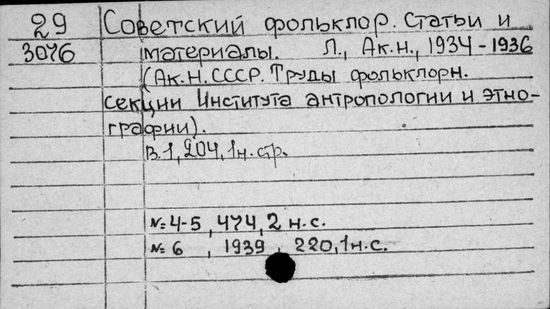 29 Советский фольклор. Статьи и
3076 материалы. Л., Ак.н., 1934-1936
(Ак.Н.СССР. Труды фольклорн.
секции Института антропологии и этно-
графии).
В.1, 204, 1н.стр.
№4-5, 474, 2 н.с.
№6, 1939, 220, 1н.с.